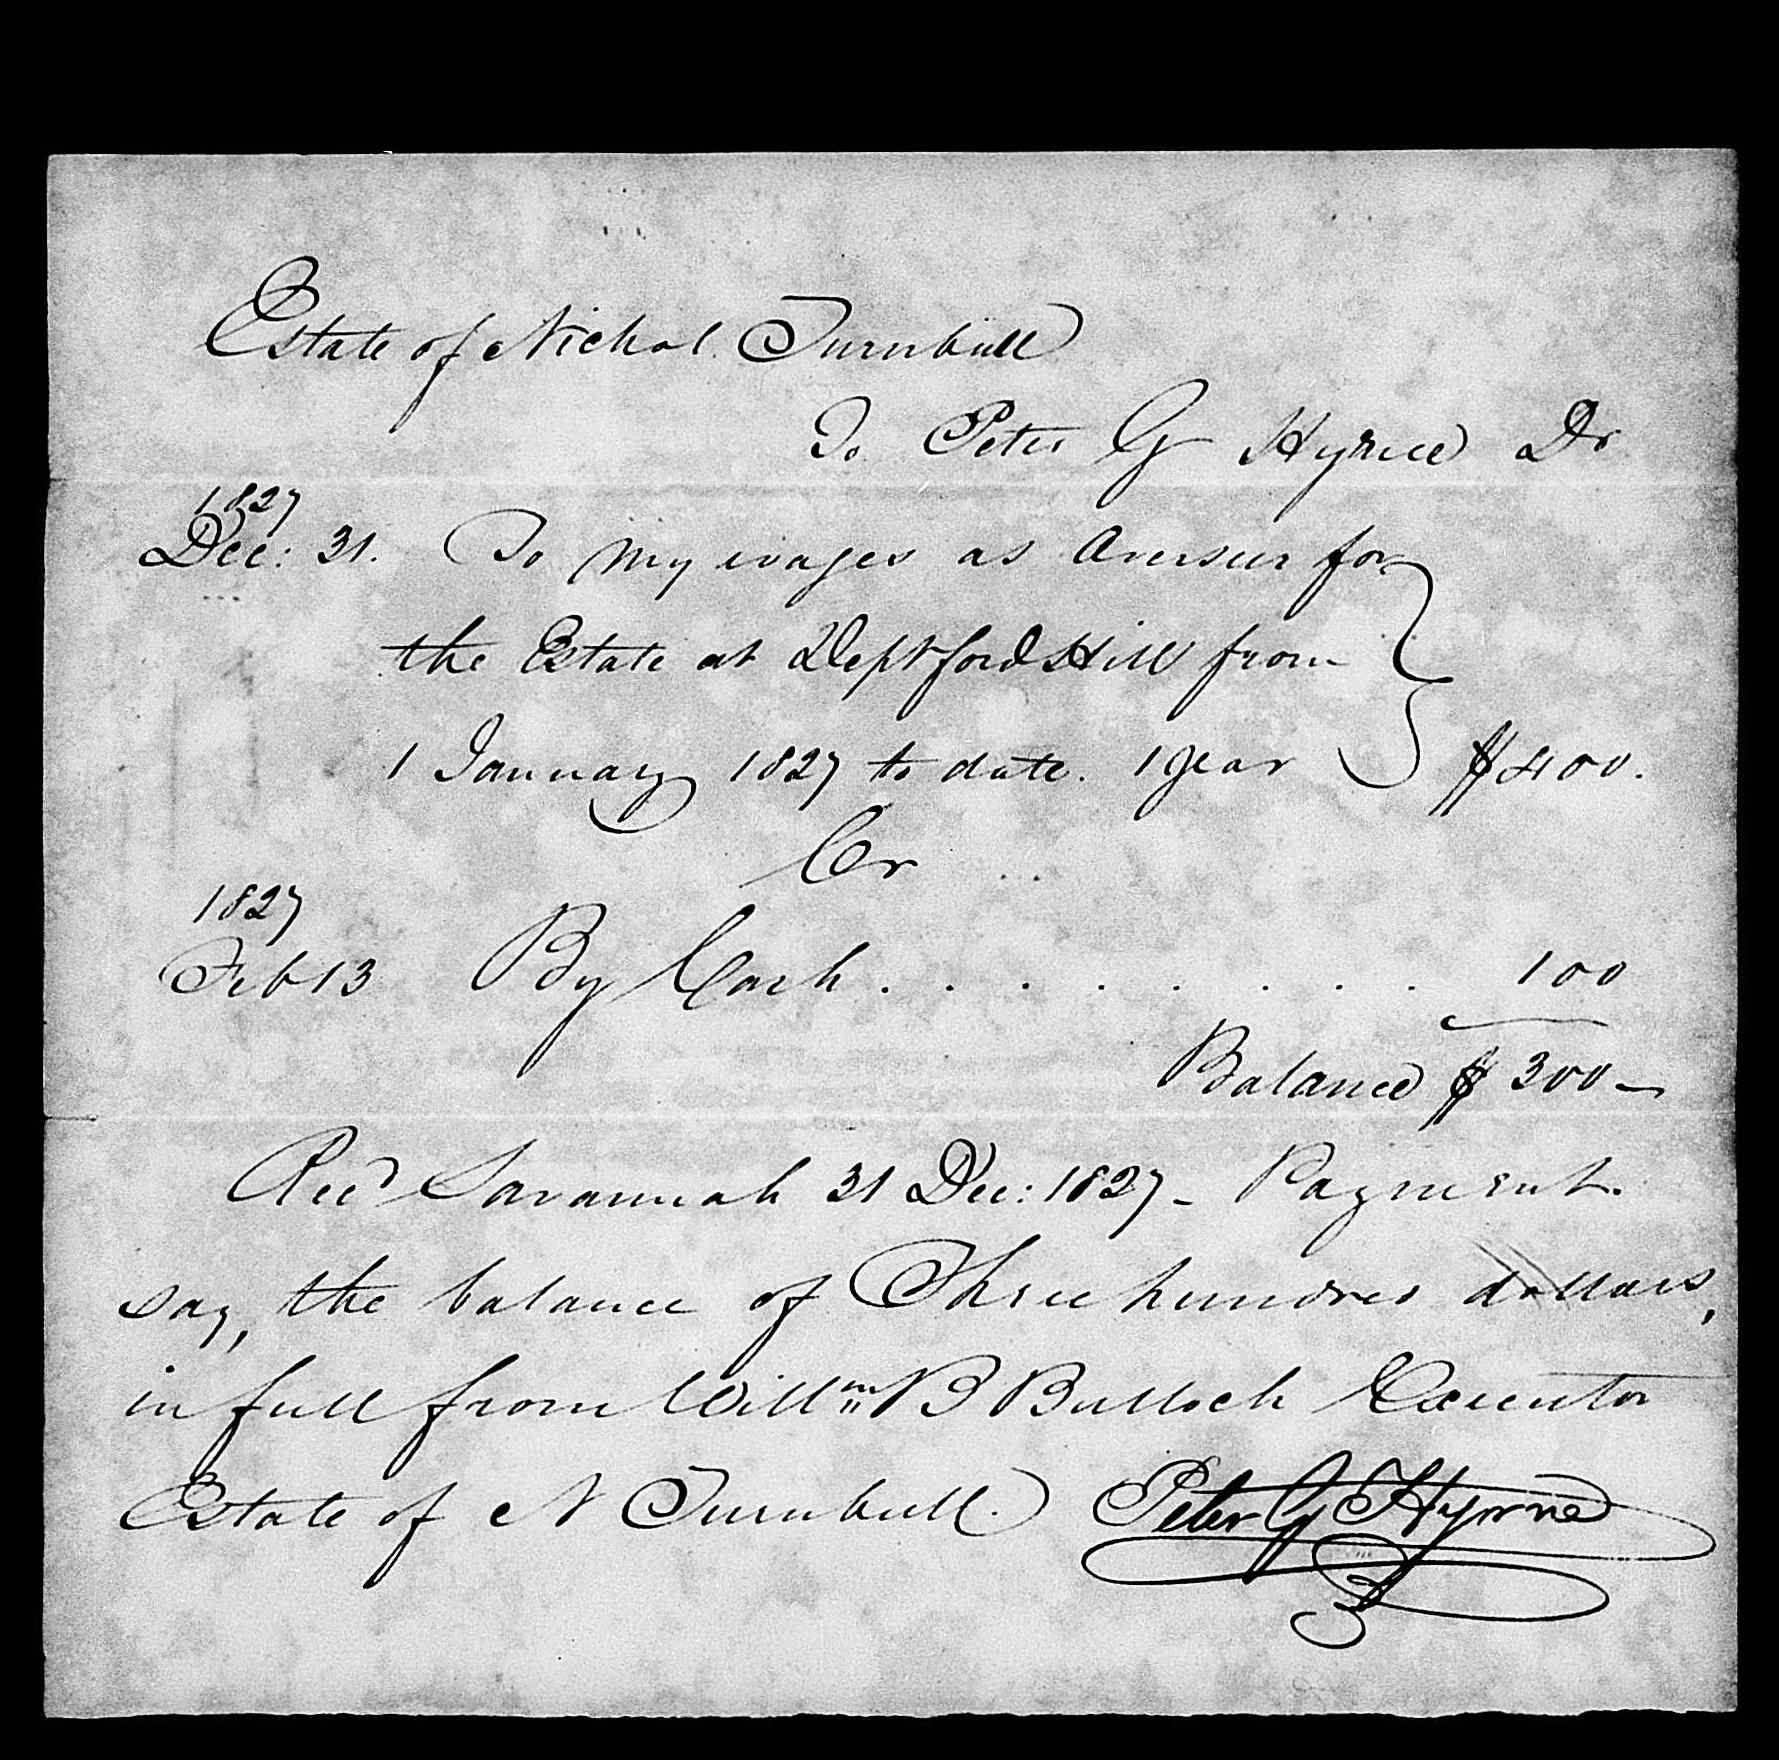 Estate of Nichol Turnbull
To Peter G Hyrne Dr
1827
Dec: 31. To my wages as Overseer for
the Estate at Deptford Hill from
1 January 1827 to date. 1 year $400.
Cr
1827
Feb 13 By Cash . . . . . . . . 100
Balance $ 300—
Recd Savannah 31 Dec: 1827 - Payment
say, the balance of Three hundred dollars,
in full from Willm B Bulloch Executor
Estate of N Turnbull. Peter G Hyrne